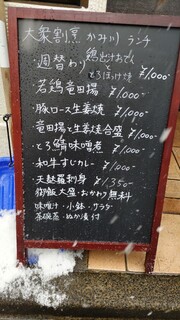 大衆割烹 かみ川 ランチ
・週替わり 鶏出汁おでん
と
とろほっけ焼 ¥1,000-
・若鶏竜田揚 ¥1,000-
・豚ロース生姜焼 ¥1,000-
・竜田揚と生姜焼合盛 ¥1,000-
・とろ鯖味噌煮 ¥1,000-
・和牛すじカレー ¥1,000-
・天麩羅刺身 ¥1,350-
御飯大盛・おかわり無料
味噌汁・小鉢・サラダ
茶碗蒸・ぬか漬付